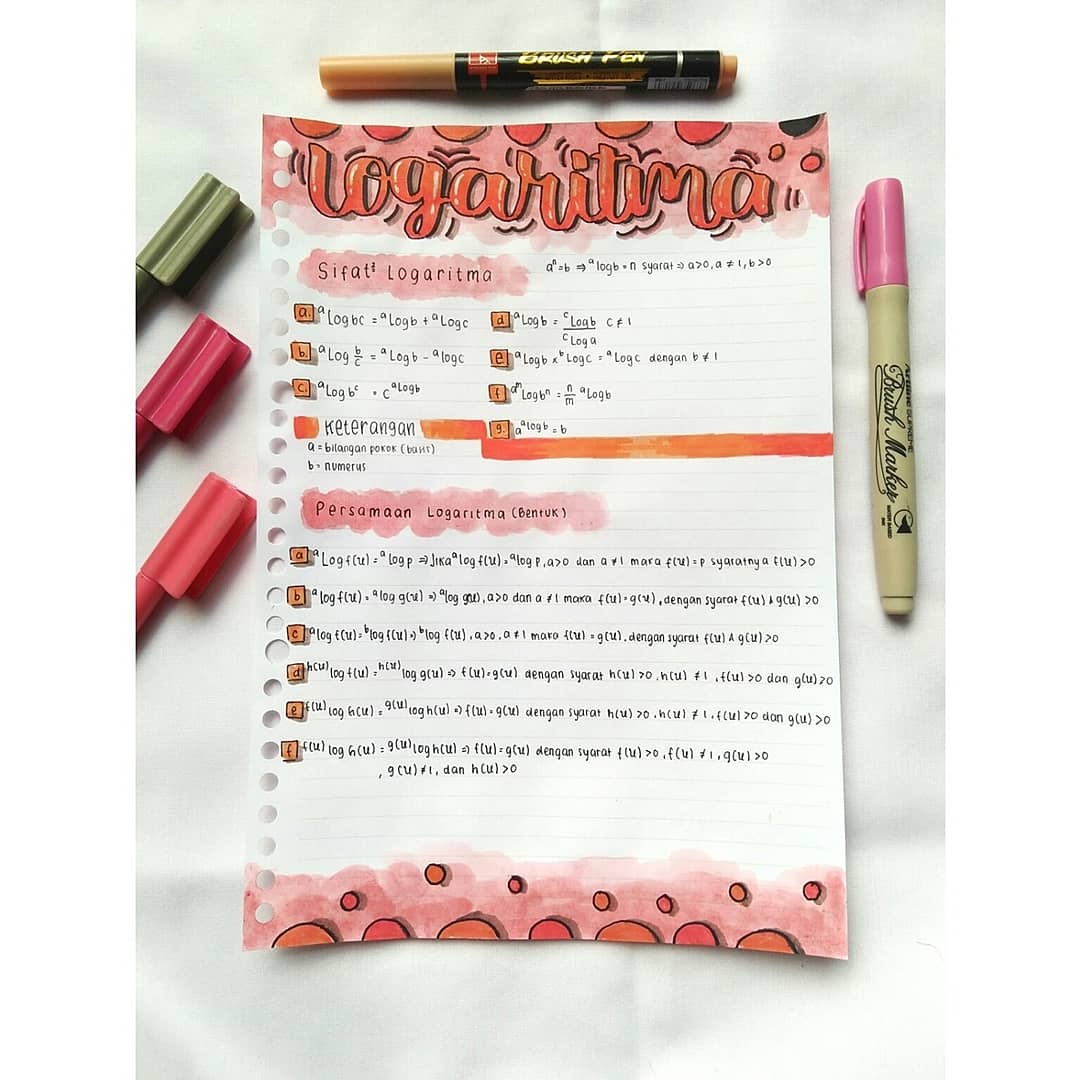 BRUSH PEN
logaritma
Sifat² Logaritma
aⁿ = b ⇒ ᵃlog b = n syarat ⇒ a>0, a ≠ 1, b>0
a. ᵃLog bc = ᵃLog b + ᵃLog c
b. ᵃLog b/c = ᵃLog b - ᵃlog c
c. ᵃLog bᶜ = c ᵃLog b
d ᵃLog b = ᶜLog b / ᶜLog a c ≠ 1
e ᵃLog b x ᵇLog c = ᵃLog c dengan b ≠ 1
f ᵃᵐLog bⁿ = n/m ᵃLog b
g. a^(ᵃlog b) = b
Keterangan
a = bilangan pokok (basis)
b = numerus
Persamaan Logaritma (Bentuk)
a ᵃLog f(x) = ᵃlog p ⇒ Jika ᵃlog f(x) = ᵃlog p, a>0 dan a ≠ 1 maka f(x) = p syaratnya f(x) >0
b ᵃlog f(x) = ᵃlog g(x) ⇒ ᵃlog g(x), a>0 dan a ≠ 1 maka f(x) = g(x), dengan syarat f(x) ∧ g(x) >0
c ᵃlog f(x) = ᵇlog f(x) ⇒ ᵇlog f(x), a>0, a ≠ 1 maka f(x) = g(x), dengan syarat f(x) ∧ g(x) >0
d ʰ⁽ˣ⁾log f(x) = ʰ⁽ˣ⁾log g(x) ⇒ f(x) = g(x) dengan syarat h(x) >0, h(x) ≠ 1, f(x) >0 dan g(x) >0
e ᶠ⁽ˣ⁾log h(x) = ᵍ⁽ˣ⁾log h(x) ⇒ f(x) = g(x) dengan syarat h(x) >0, h(x) ≠ 1, f(x) >0 dan g(x) >0
f ᶠ⁽ˣ⁾log h(x) = ᵍ⁽ˣ⁾log h(x) ⇒ f(x) = g(x) dengan syarat f(x) >0, f(x) ≠ 1, g(x) >0
, g(x) ≠ 1, dan h(x) >0
Artline SUPREME
Brush Marker
WATER BASED
INK